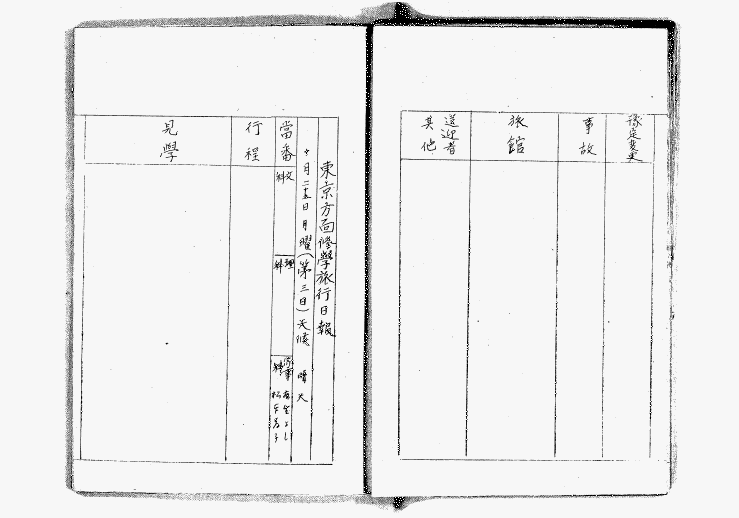 東京方面修學旅行日報
十月二十五日 月曜(第三日) 天候 晴天
當番
文科
理科
家事科
行程
見學
豫定変更
事故
旅館
送迎者
其他